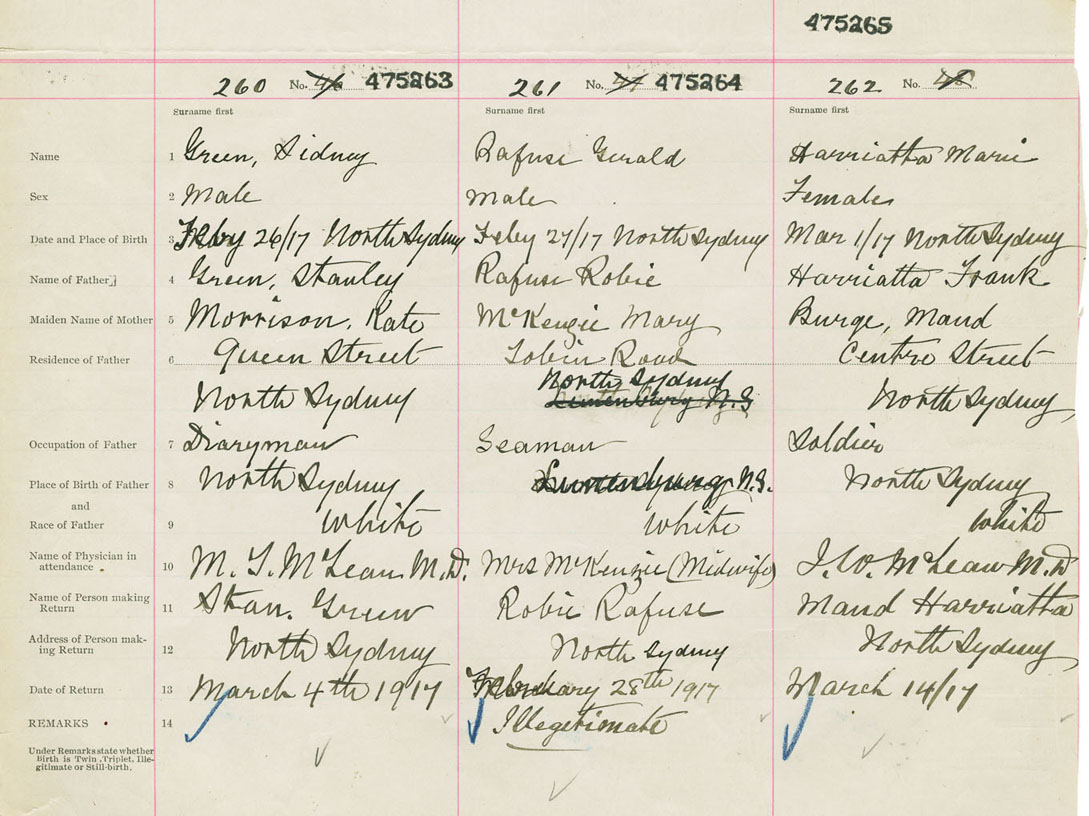 475265
260 No. 46 475263 261 No. 47 475264 262 No. 48
Surname first Surname first Surname first
Name 1 Green, Sidney Rafuse Gerald Harriatha Marie
Sex 2 Male Male Female
Date and Place of Birth 3 Feby 26/17 North Sydney Feby 27/17 North Sydney Mar 1/17 North Sydney
Name of Father 4 Green, Stanley Rafuse Robie Harriatta Frank
Maiden Name of Mother 5 Morrison, Kate McKenzie Mary Burge, Maud
Residence of Father 6 Queen Street Tobin Road Centre Street
North Sydney North Sydney North Sydney,
Lunenburg N.S
Occupation of Father 7 Diaryman Seaman Soldier
Place of Birth of Father 8 North Sydney N.S. North Sydney
and
Race of Father 9 White White White
Name of Physician in
attendance 10 M. T. McLean M.D. Mrs McKenzie (Midwife) J. W. McLean M.D
Name of Person making
Return 11 Stan. Green Robie Rafuse Maud Harriatha
Address of Person mak-
ing Return 12 North Sydney North Sydney North Sydney
Date of Return 13 March 4th 1917 February 28th 1917 March 14/17
REMARKS 14 Illegetimate
Under Remarks state whether
Birth is Twin, Triplet, Ille-
gitimate or Still-birth.